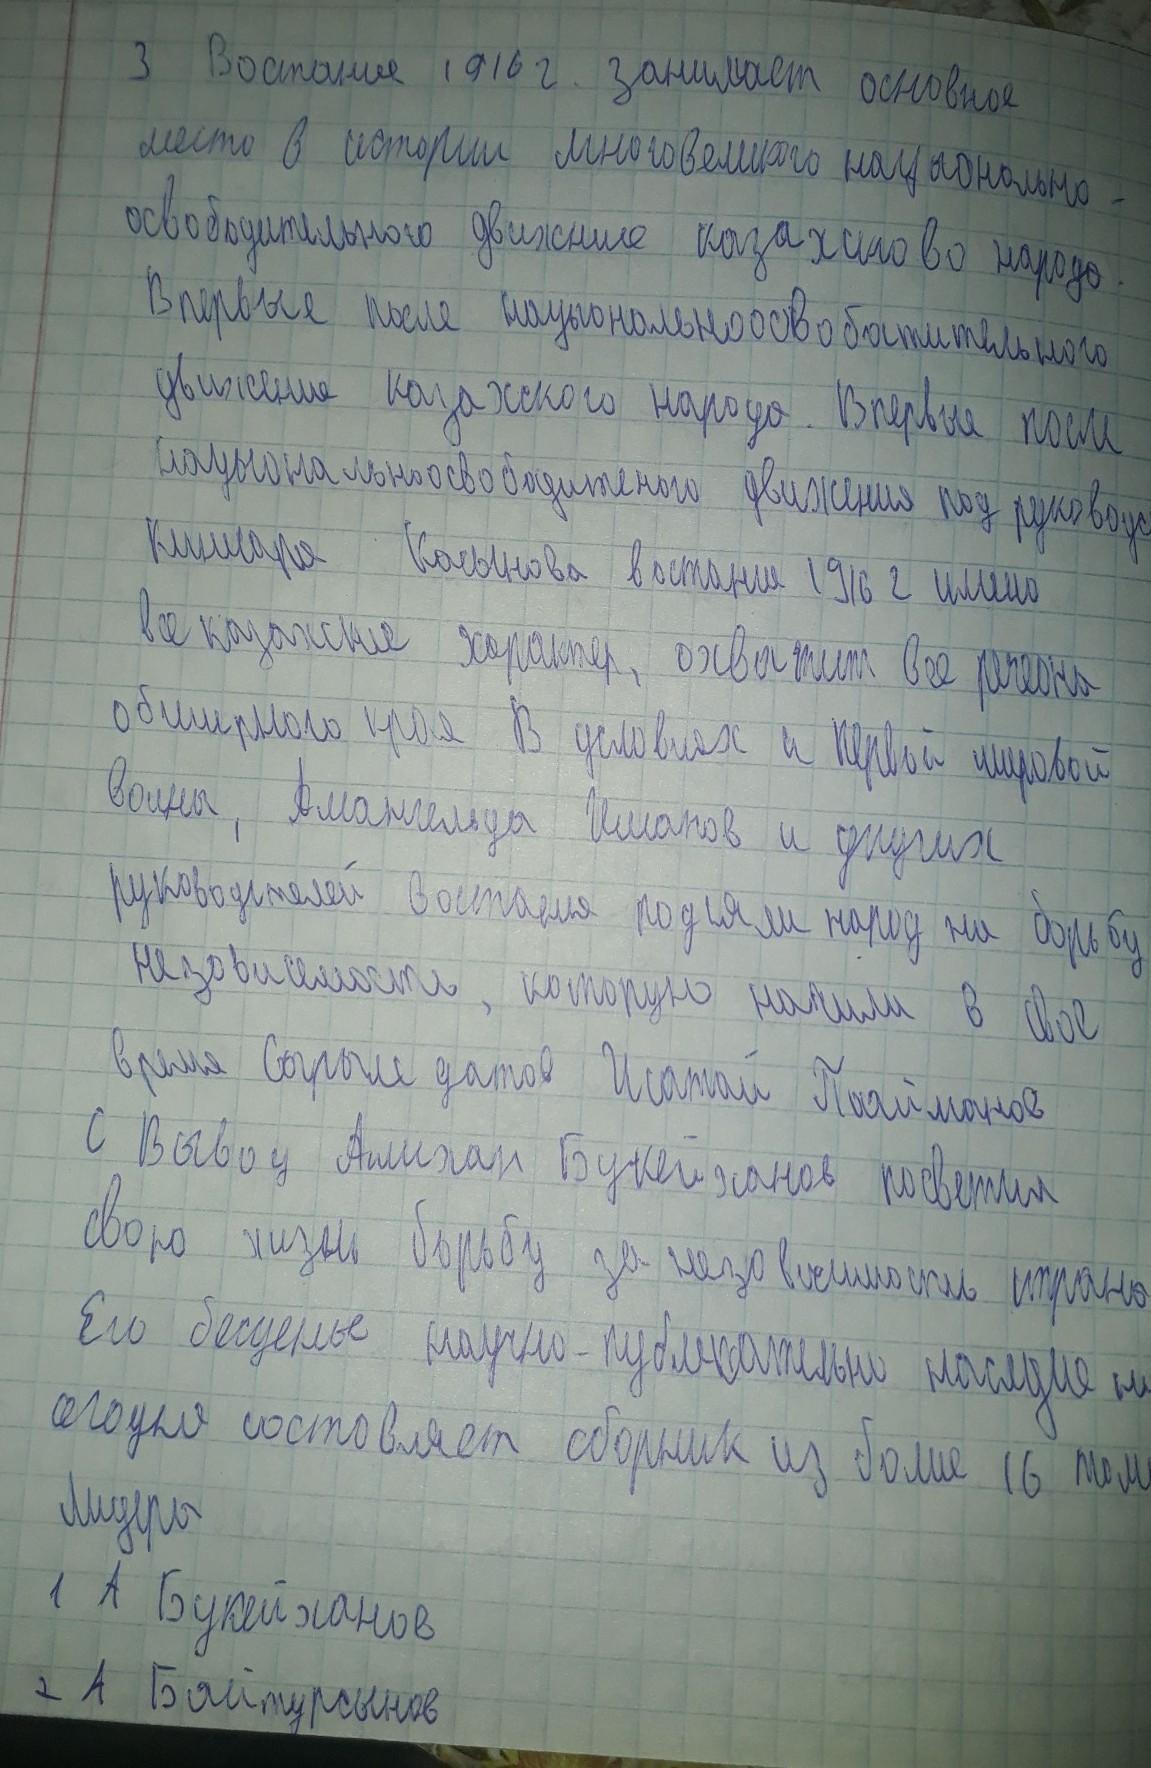 3 Востание 1916 г. занимает основное
место в истории многовемкого нацыонально-
освободительного движение казахского народа.
Впервые после нацыональноосвобатительного
движения казахского народа. Впервые после
нацыональноосвободитеного движения под руководс
Кинисара Касынова востание 1916 г имено
все казахские характер, охватит все регеоны
обширного края В условиях и Первой мировой
войны, Амангельды Иманов и других
руководителей востания подняли народ на борьбу
независемость, которую начили в свое
время Сырым датов Исатай Таайманов
С Вывод Алихан Букейханов посветил
свою жизнь борьбу за незовисимость страны
Его бесценые научно-публекательно наследие на
сегодня состовляет сборник из более 16 томо
Лидеры
1 А Букейханов
2 А Байтурсынов